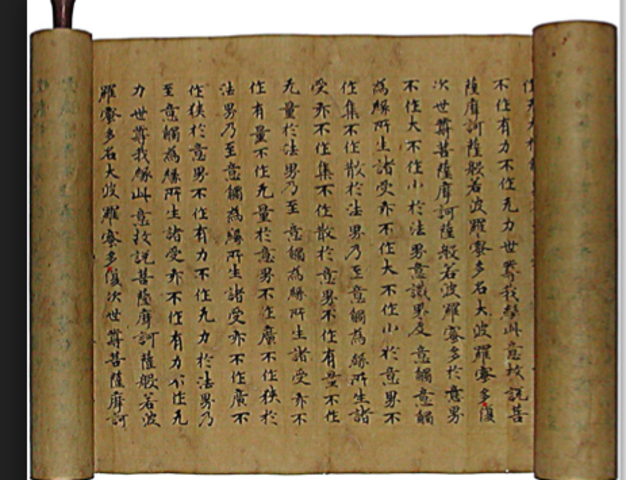 不作有力不作无力世尊我緣此意故說菩
薩摩訶薩般若波羅蜜多名大波羅蜜多復
次世尊菩薩摩訶薩般若波羅蜜多於意界
不作大不作小於法界意識界及意觸意觸
為緣所生諸受亦不作大不作小於意界不
作集不作散於法界乃至意觸為緣所生諸
受亦不作集不作散於意界不作有量不作
无量於法界乃至意觸為緣所生諸受亦不
作有量不作无量於意界不作廣不作狹於
法界乃至意觸為緣所生諸受亦不作廣不
作狹於意界不作有力不作无力於法界乃
至意觸為緣所生諸受亦不作有力不作无
力世尊我緣此意故說菩薩摩訶薩般若波
羅蜜多名大波羅蜜多復次世尊菩薩摩訶